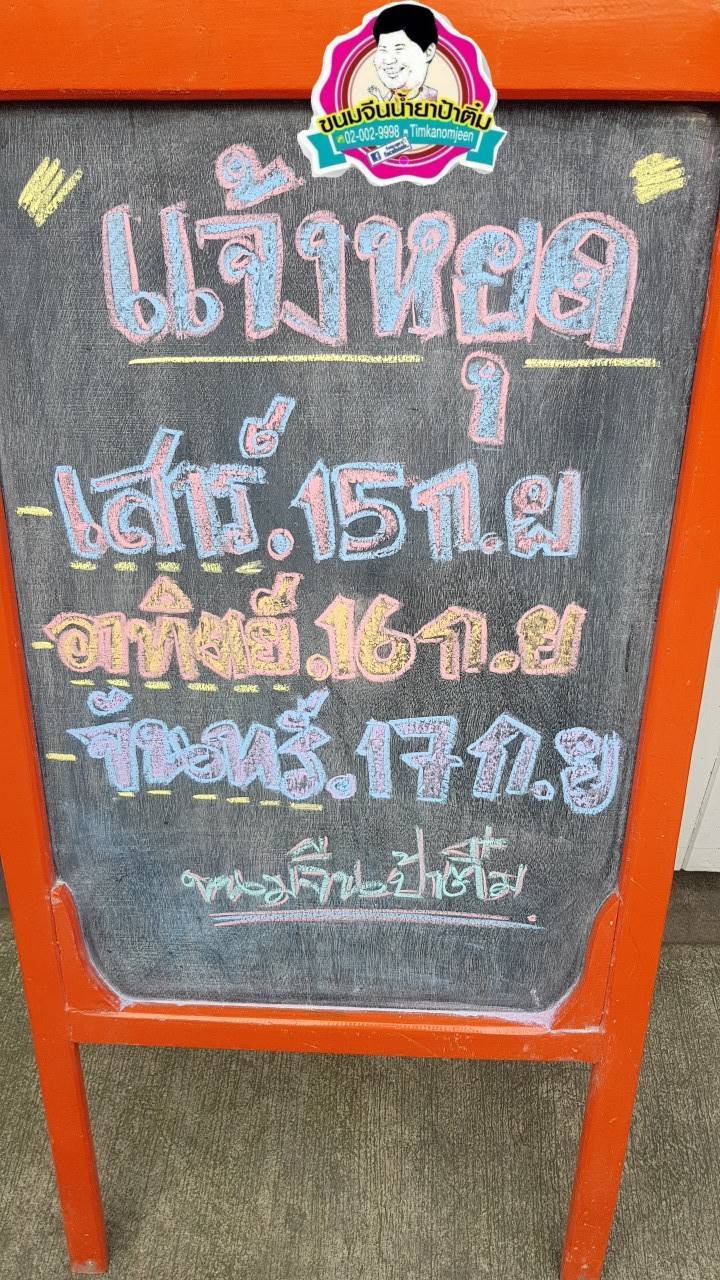 ขนมจีนน้ำยาป้าติ๋ม
02-002-9998 Timkanomjeen
แจ้งหยุด
- เสาร์.15 ก.ย
- อาทิตย์.16 ก.ย
- จันทร์.17 ก.ย
ขนมจีนป้าติ๋ม